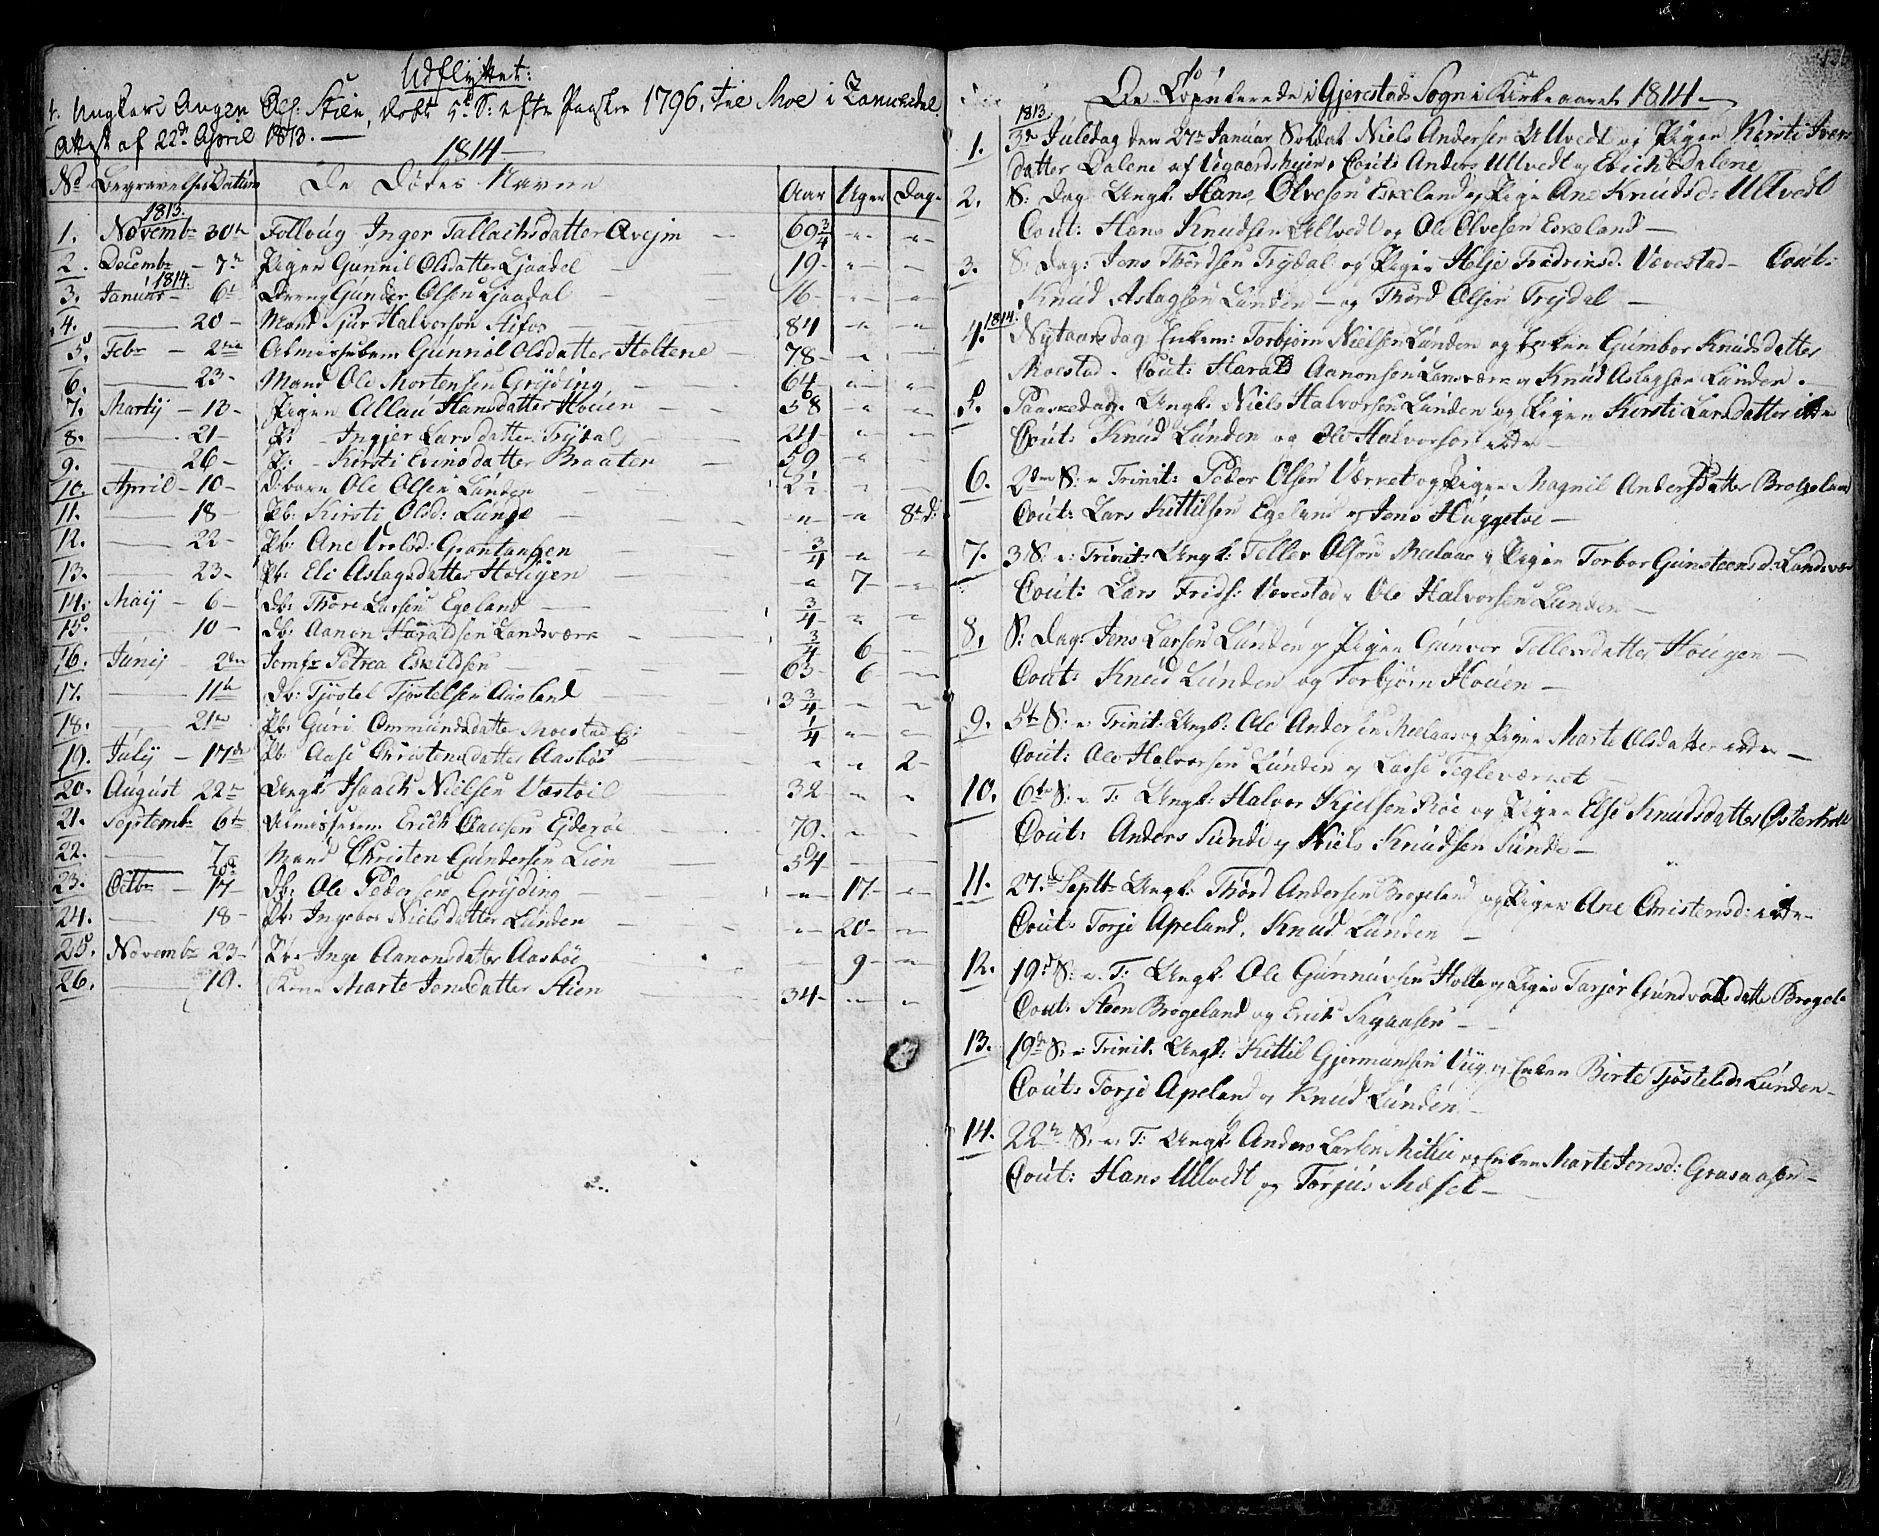 Udflyttet:
1. Ungkarl Aagen Ols: Stien, døbt 5te S: efter Paaske 1796, til Moe i
Attest af 22d April 1813.
1814
No Begravelses Datum De Dødes Navne Aar Uger Dage
1813.
1. Novembr 30te Inger Tallachsdatter Qvejm 69 3/4 " "
2. Decembr 7de Pigen Gunnil Olsdatter Ljaadal 19 " "
1814.
3. Januar 6te Dreng Gunder Olsen Ljaadal 16 " "
4. 20 Mand Sjur Halvorsen 84 " "
5. Febr 2den Almisselem Gunnil Olsdatter Holtene 78 " "
6. 23 Mand Ole Mortensen Gryding 64 " "
7. Martij 13 Pigen Hansdatter Houen 58 " "
8. 21 P: Ingjer Larsdatter Trydal 24 " "
9. 26 P: Kirsti Evinsdatter Braaten 59 " "
10. April 10 D:barn Ole Olsen Lunden " "
11. 18 Pb: Kirsti Olsd: Lunde " " 8te d:
12. 22 Pb: Ane 3/4 " "
13. 23 Pb: Eli Aslagsdatter Hougen " 7 "
14. Maij 6 Db: Thore Larsen Egeland 3/4 " "
15. 10 Db: Aanon Haraldsen Landsværk 3/4 6 "
16. Junij 2den Jomfr Petrea Eskildsen 63 6 "
17. 11te Db: Tjostel Tjostelsen Ausland 3 3/4 " "
18. 21de Pb: Guri Ommundsdatter Moestad 1/4 " "
19. Julij 17de Pb: Aase Christensdatter Aasbøe " " 2
20. August 22de Ungk: Isaach Nielsen Vestøil 32 " "
21. Septembr 6te Almisselem Erich Clausen Eideröe 79 " "
22. 7 Mand Christen Gundersen Lien 54
23. Octbr 17 Db: Ole Pedersen Gryding " 17 "
24. 18 Pb: Ingebor Nielsdatter Lunden " 20 "
25. Novembr 23 Pb: Inge Aanonsdatter Aasbøe 9 "
26. 19. Kone Marte Jensdatter Stien 34 " "
De Copulerede i Gjerestads Sogn i Kirkeaaret 1814
1813.
1. 3de Juledag den 27de Januar Soldat Niels Andersen Ullvedt og Pigen Kirsti Ivers
datter Dalene af Vegaardshejen. Cout: Anders Ullvedt og Erich Dalene
2. S: Dag: Ungk: Hans Olvesen Eskeland og Pige Ane Knudsd: Ullvedt
Cout: Hans Knudsen Ullvedt og Ole Olvesen Eskeland
3. S: Dag: Jens Thordsen Trydal og Pigen Helje Vevestad Cout:
Knud Aslagsen Lunden og Thord Olsen Trydal
1814.
4. Nytaarsdag Enkem: Torbjørn Nielsen Lunden og Enken Gumbor Knudsdatter
Moestad. Cout: Harald Aanonsen Landsværk og Knud Aslagsen Lunden.
5. Paaskedag. Ungk: Niels Halvorsen Lunden og Pigen Kirsti Larsdatter ibm
Cout: Knud Lunden og Ole Halvorsen ibm
6. 2den S: e: Trinit: Peder Olsen Værret og Pigen Magnil Andersdatter Brogeland
Cout: Lars Kittilsen Egeland og Jens Huggetve
7. 3 S: e: Trinit: Ungk: Tellev Olsen Melaas og Pigen Torbor Gunsteensd: Landsvær
Cout: Lars Frids: Vevestad og Ole Halvorsen Lunden
8. S: Dag: Jens Larsen Lunden og Pigen Gunvor Tellevsdatter Hougen
Cout: Knud Lunden og Torbjørn Houen
9. 5te S: e: Trinit: Ungk: Ole Andersen Melaas og Pigen Marte Olsdatter ibm
Cout: Ole Halvorsen Lunden og Lasse Tegleverket
10. 6te S: e: T: Ungk: Halvor Kjelsen Röe og Pigen Else Knudsdatter Østerholt
Cout: Anders Sunde og Niels Knudsen Sunde
11. 27de Septbr Ungk: Thord Andersen Brogeland og Pigen Ane Christensd: ibm
Cout: Torje Apeland, Knud Lunden
12. 19de S: e: T: Ungk: Ole Gunnuvsen Holte og Pigen Tarjer Gundvalsdatter Brogel
Cout: Steen Brogeland og Erich
13. 19de S: e: Trinit: Ungk: Kittil Gjermundsen Viig og Enken Birte Tjostelsd: Lunden
Cout: Torje Apeland og Knud Lunden
14. 22de S: e: T: Ungk: Anders Larsen Mitlie og Enken Marte Jensd: Grasaasen
Cout: Hans Ullvedt og Torjus Mosel